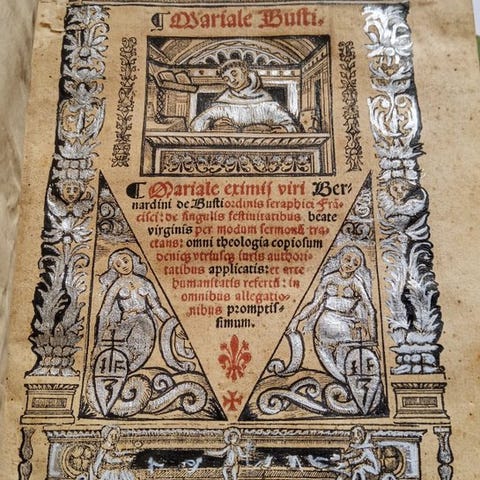 ¶ Mariale Busti.
¶ Mariale eximij viri Ber-
nardini de Busti ordinis seraphici Frā
cisci: de singulis festiuitatibus beate
virginis per modum sermonū tra
ctans: omni theologia copiosum
deniqꝫ vtriusqꝫ iuris authori
tatibus applicatis: et arte
humanitatis refertū: in
omnibus allegatio-
nibus promptis-
simum.